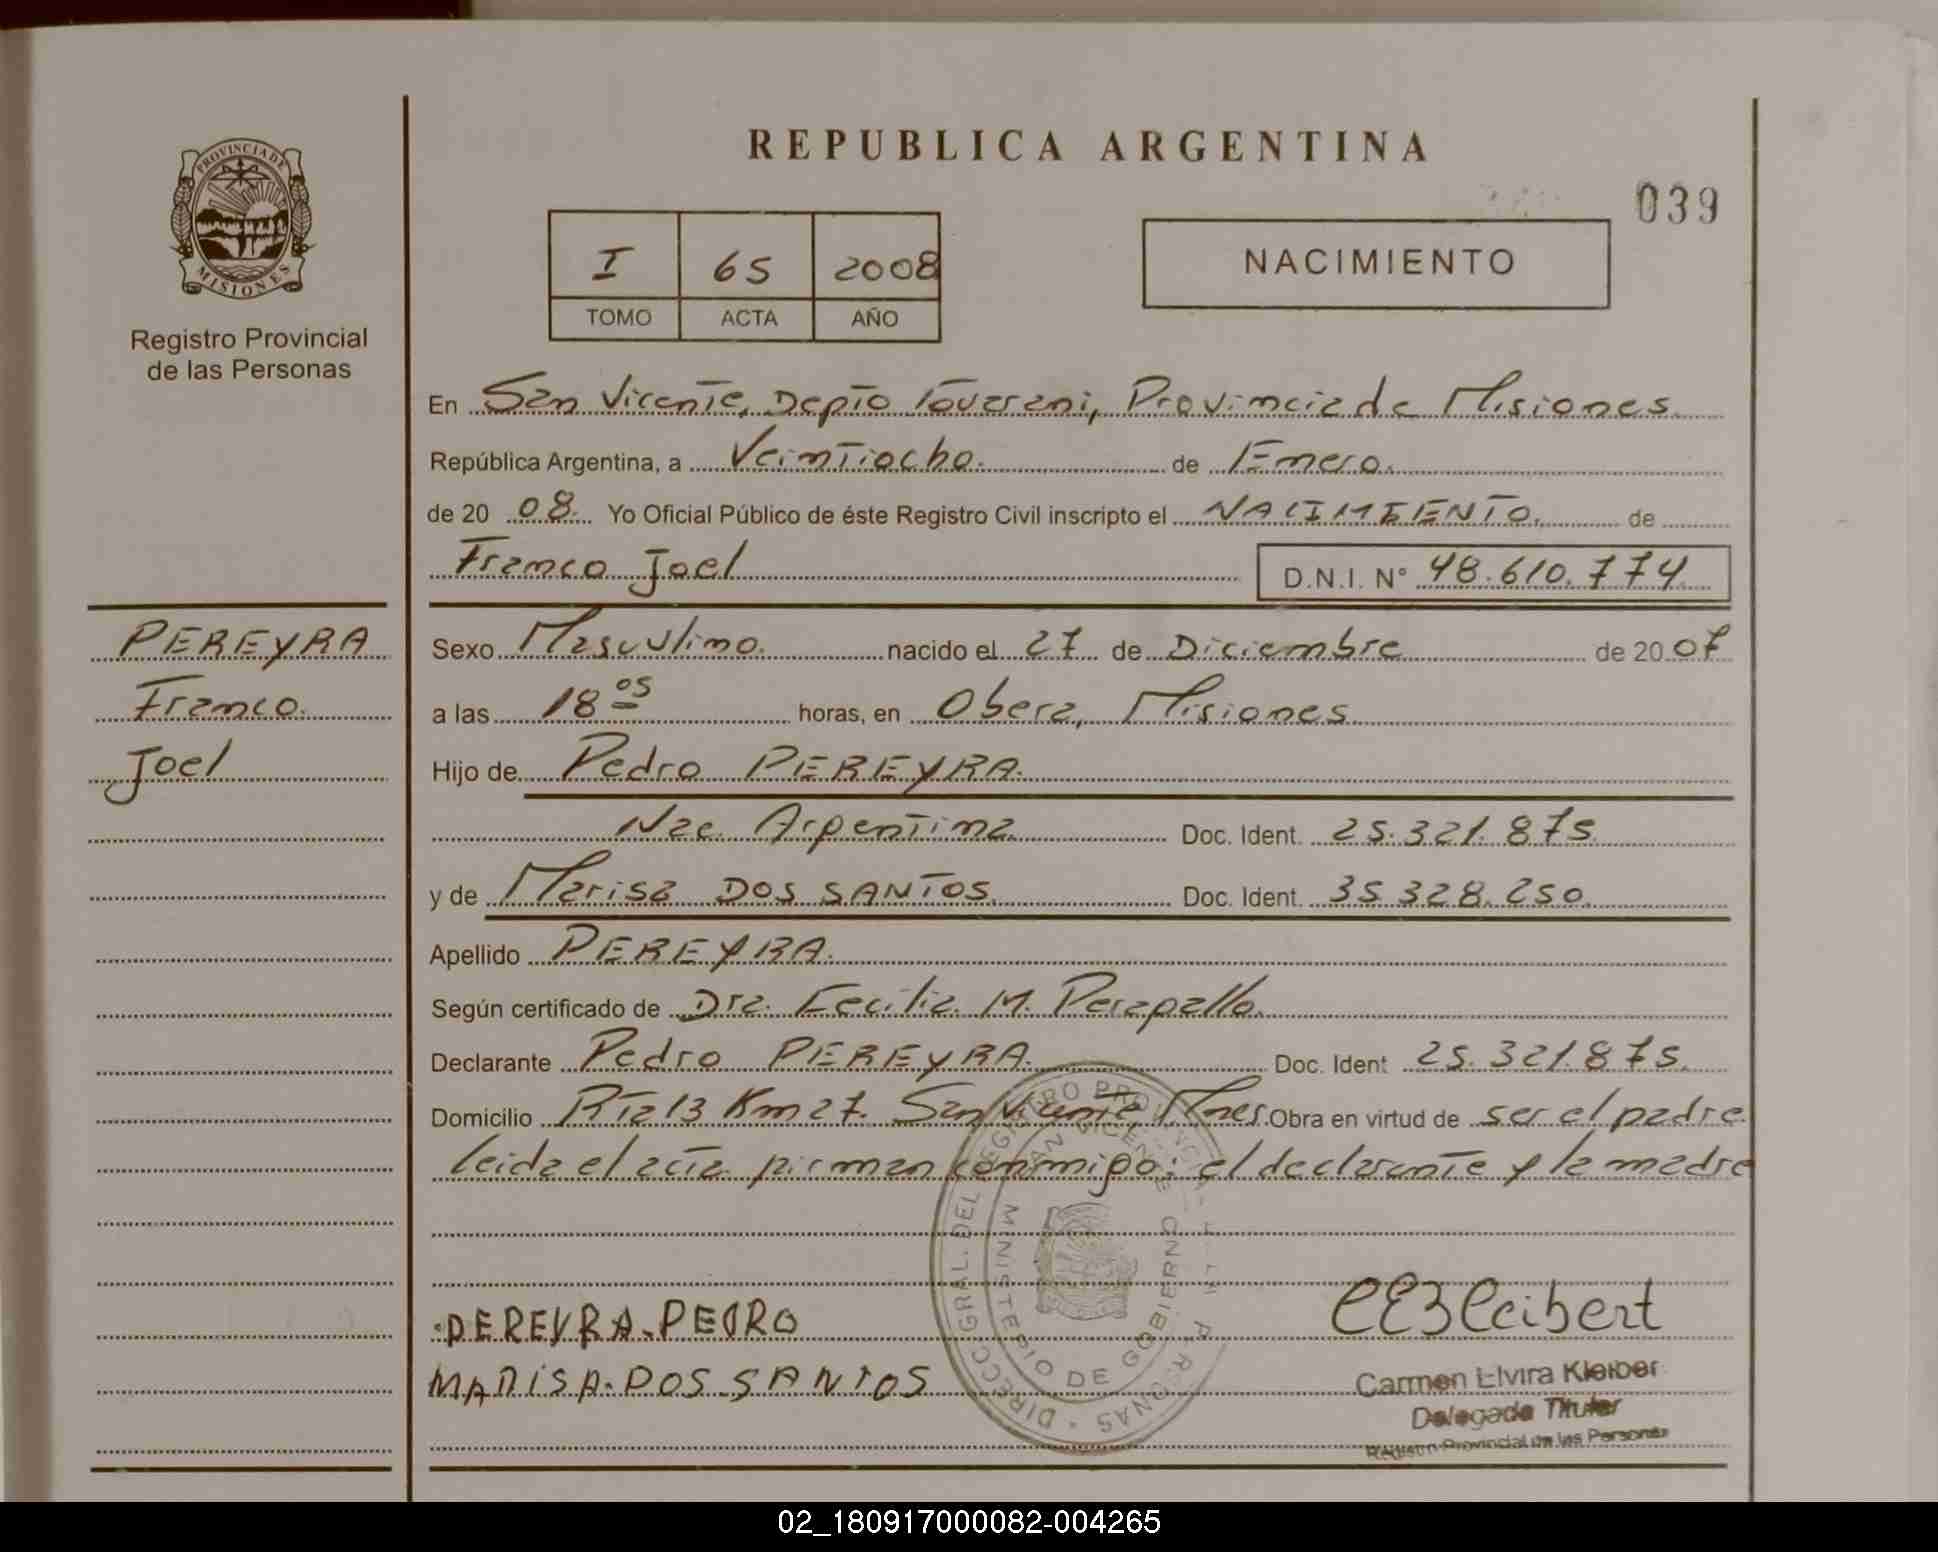 REPUBLICA ARGENTINA
039
PROVINCIA DE
MISIONES
Registro Provincial
de las Personas
I 65 2008
TOMO ACTA AÑO
NACIMIENTO
En San Vicente, Depto Guarani, Provincia de Misiones
República Argentina, a Veintiocho. de Enero.
de 20 08. Yo Oficial Público de éste Registro Civil inscripto el NACIMIENTO. de
Franco Joel D.N.I. N° 48.610.774
PEREYRA
Franco.
Joel
Sexo Masculino. nacido el 27 de Diciembre de 20 07
a las 18 05 horas, en Obera, Misiones
Hijo de Pedro PEREYRA.
Nac. Argentina Doc. Ident. 25.321.875
y de Marisa DOS SANTOS. Doc. Ident. 35 328.250.
Apellido PEREYRA.
Según certificado de Dra. Cecilia M. Perapallo.
Declarante Pedro PEREYRA. Doc. Ident 25.321.875.
Domicilio Rta 13 Km 27. San Vicente Mnes. Obra en virtud de ser el padre
leida el acta firman conmigo: el declarante y la madre
DIRECC GRAL. DEL REGISTRO PROVINCIAL PERSONAS
SAN VICENTE
MINISTERIO DE GOBIERNO
PEREYRA. PEDRO
MARISA. DOS SANTOS
Carmen Elvira Kleiber
Delegada Titular
Registro Provincial de las Personas
02_180917000082-004265